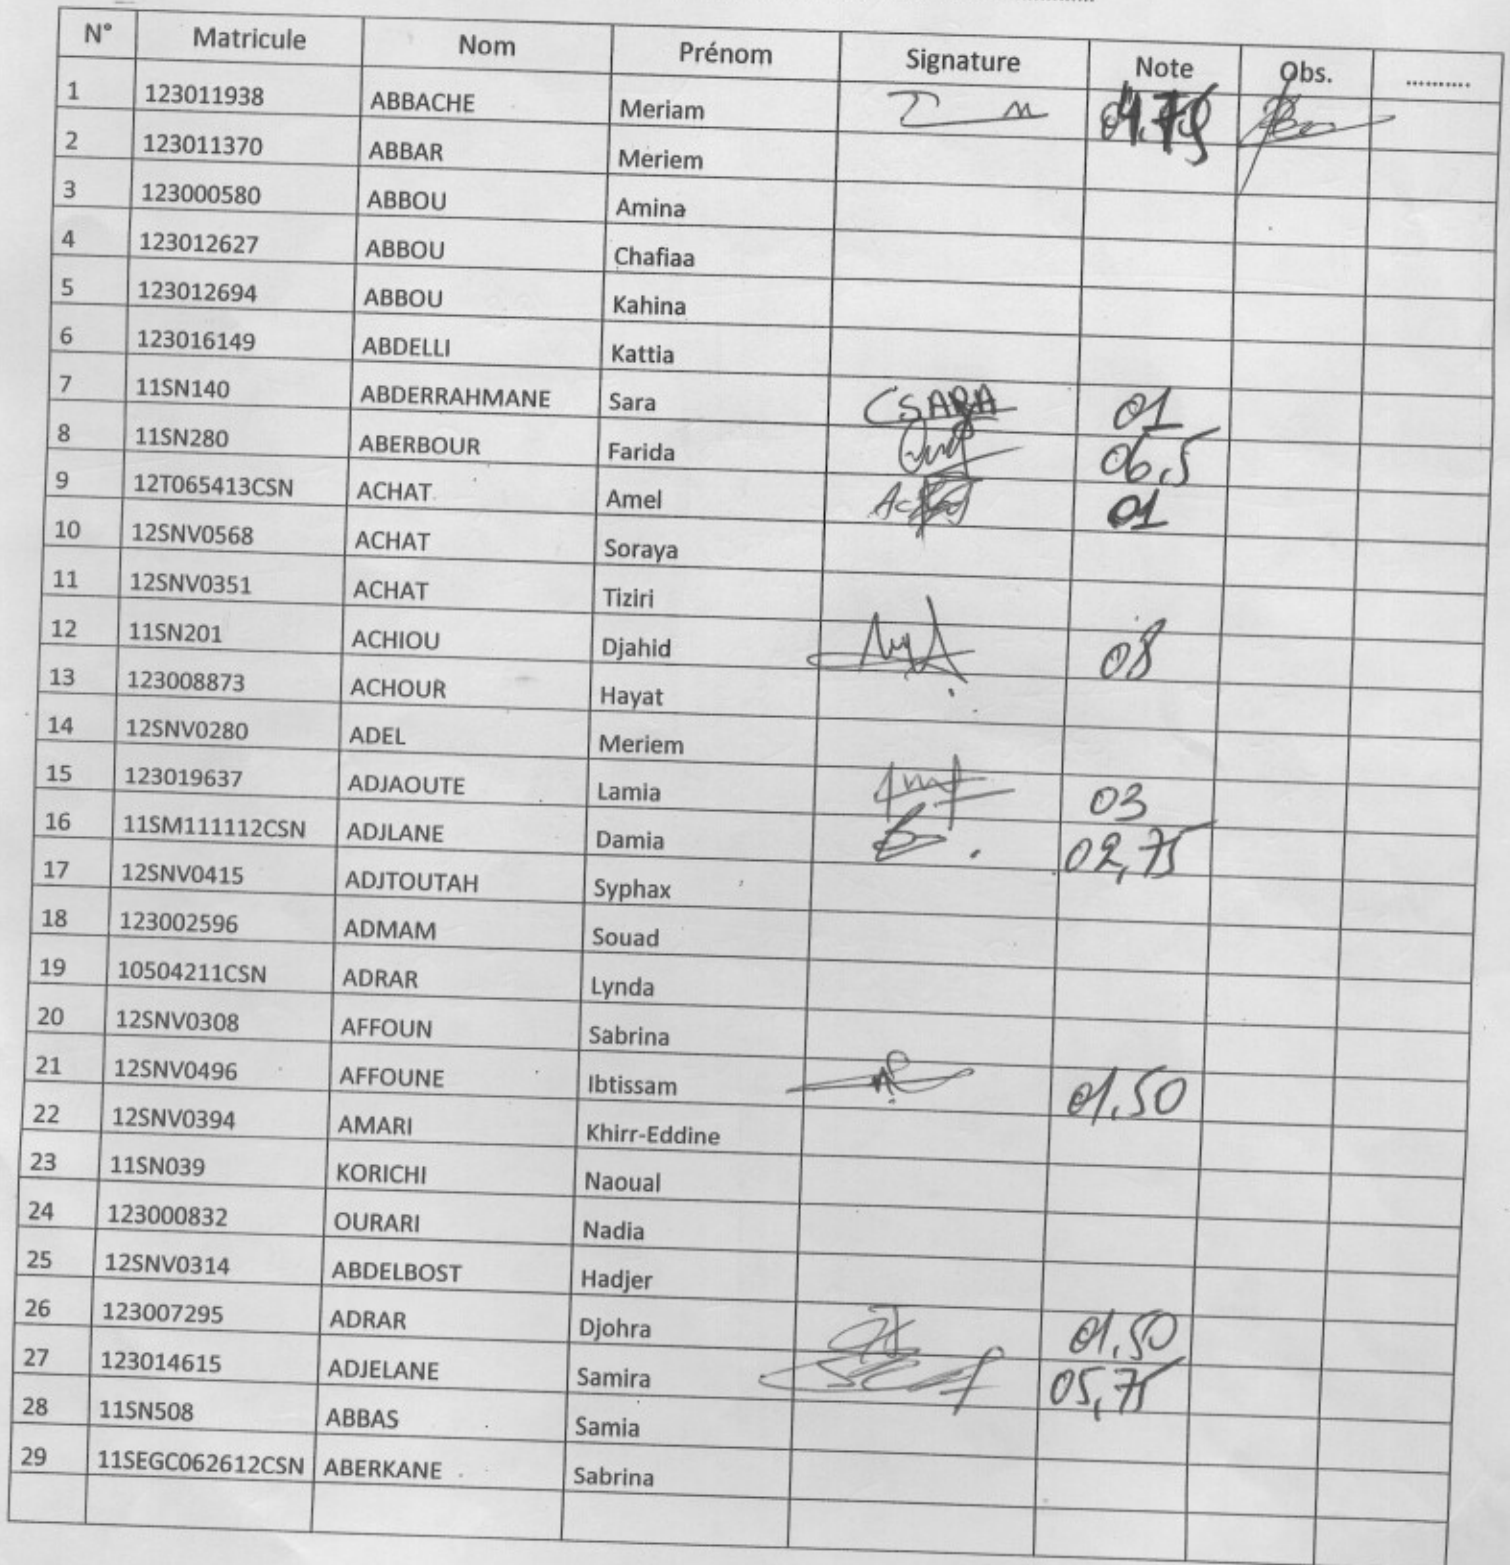 N° Matricule Nom Prénom Signature Note Obs. ..........
1 123011938 ABBACHE Meriam
2 123011370 ABBAR Meriem
3 123000580 ABBOU Amina
4 123012627 ABBOU Chafiaa
5 123012694 ABBOU Kahina
6 123016149 ABDELLI Kattia
7 11SN140 ABDERRAHMANE Sara SARA 01
8 11SN280 ABERBOUR Farida 06,5
9 12T065413CSN ACHAT Amel 01
10 12SNV0568 ACHAT Soraya
11 12SNV0351 ACHAT Tiziri
12 11SN201 ACHIOU Djahid 08
13 123008873 ACHOUR Hayat
14 12SNV0280 ADEL Meriem
15 123019637 ADJAOUTE Lamia 03
16 11SM111112CSN ADJLANE Damia 02,75
17 12SNV0415 ADJTOUTAH Syphax
18 123002596 ADMAM Souad
19 10504211CSN ADRAR Lynda
20 12SNV0308 AFFOUN Sabrina
21 12SNV0496 AFFOUNE Ibtissam 01,50
22 12SNV0394 AMARI Khirr-Eddine
23 11SN039 KORICHI Naoual
24 123000832 OURARI Nadia
25 12SNV0314 ABDELBOST Hadjer
26 123007295 ADRAR Djohra 01,50
27 123014615 ADJELANE Samira 05,75
28 11SN508 ABBAS Samia
29 11SEGC062612CSN ABERKANE Sabrina